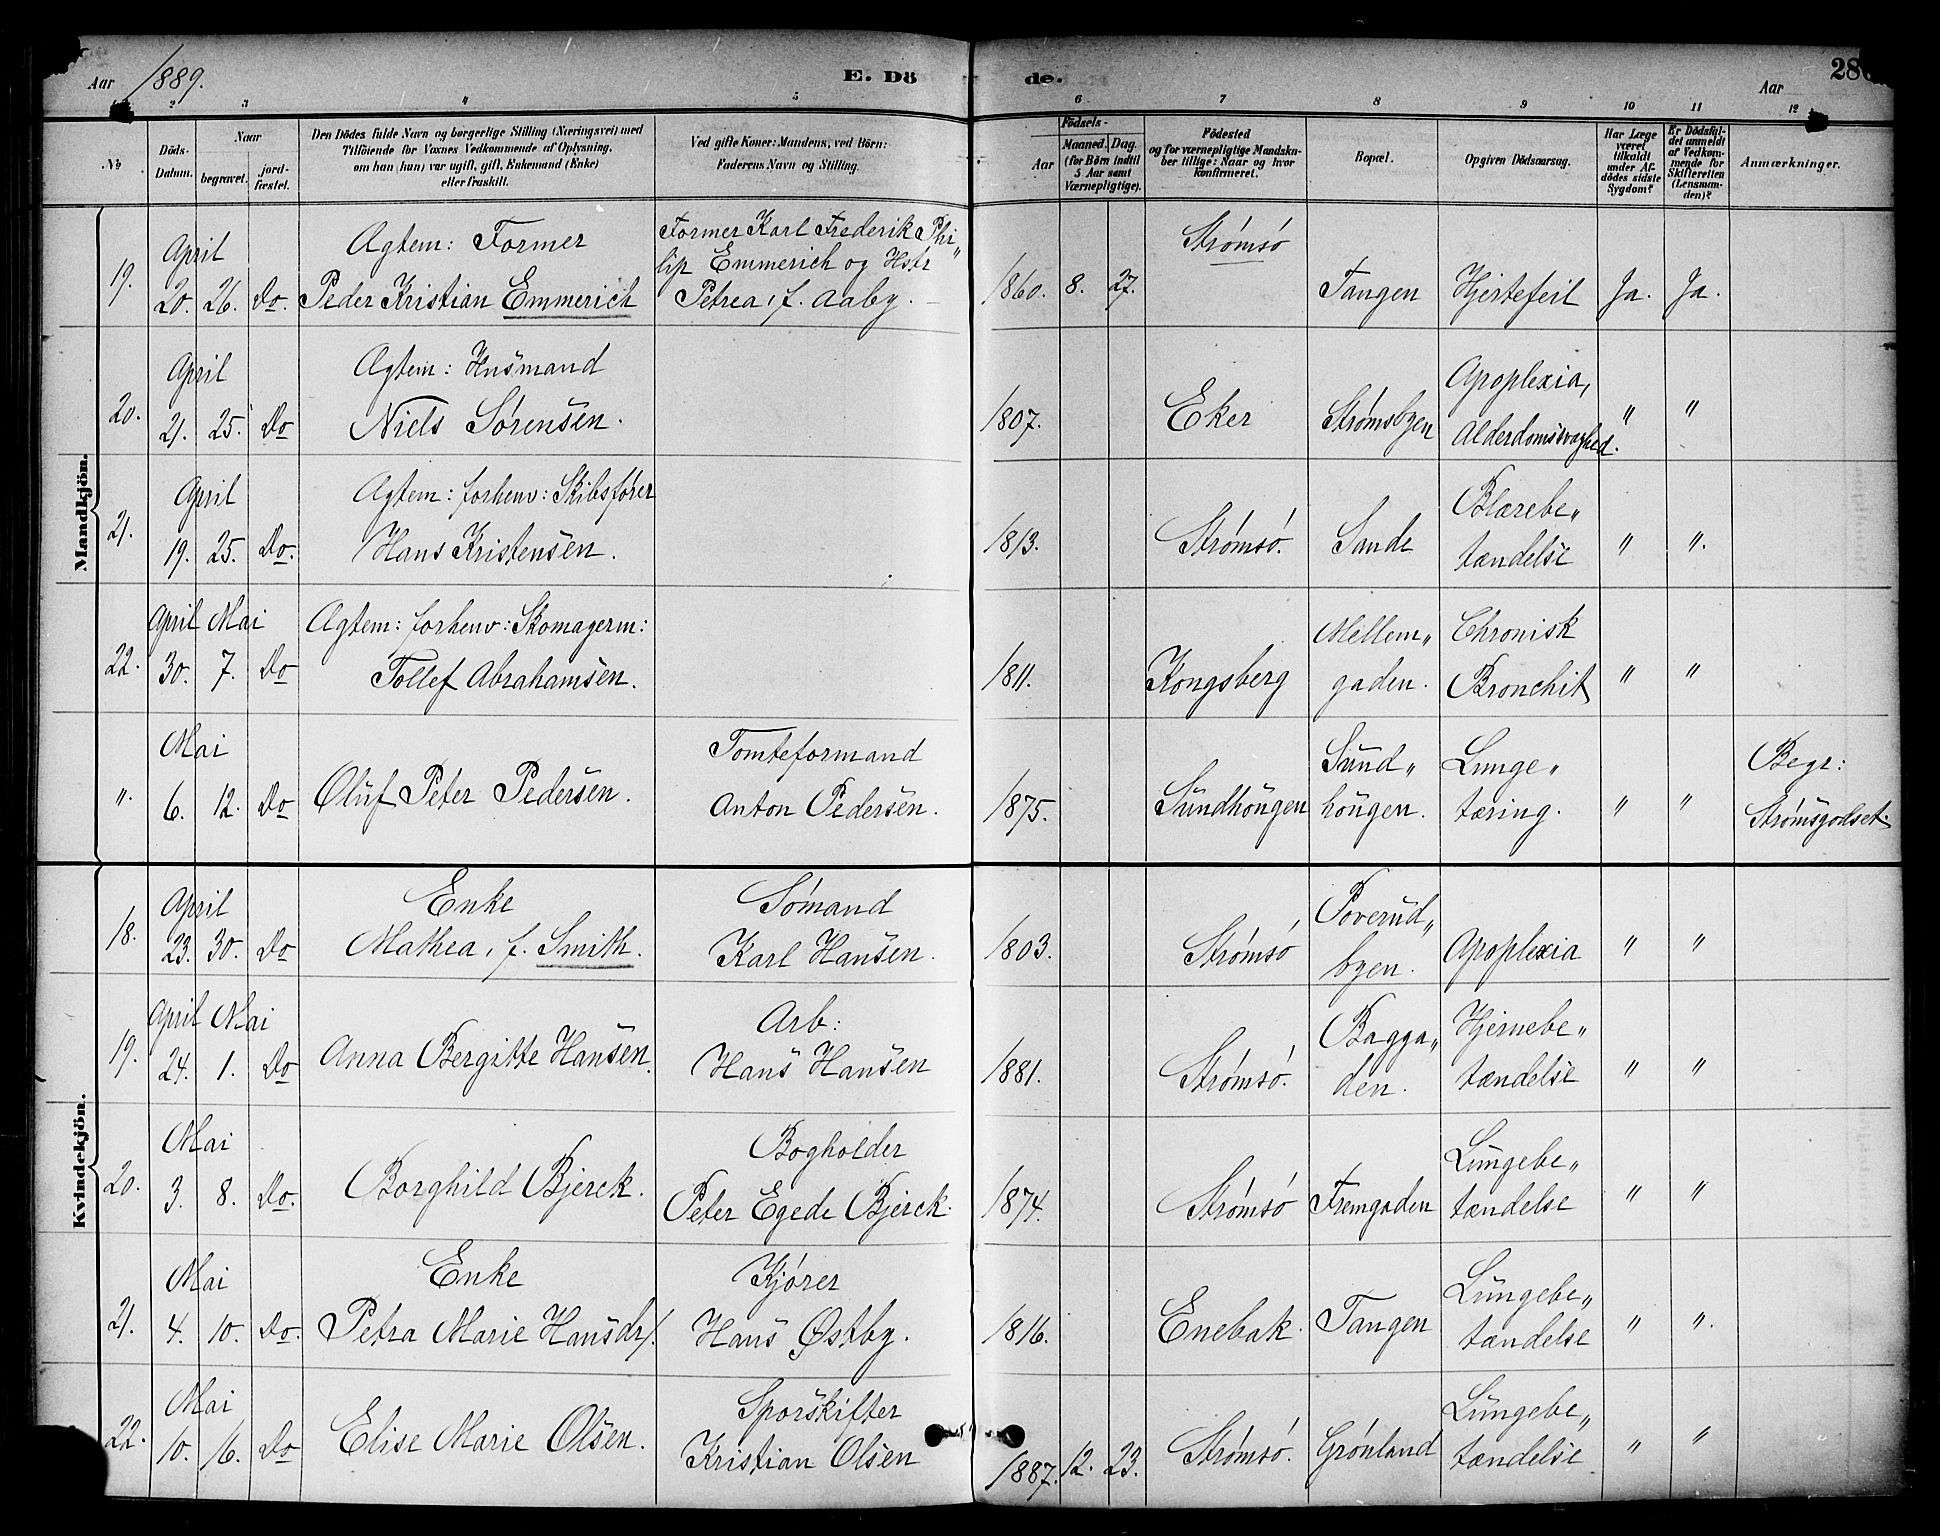 Aar 1889. E. Dö de. Aar 28
1 2 3 4 5 6 7 8 9 10 11 12
No. Döds-Datum. Naar begravet. jord-fæstet. Den Dödes fulde Navn og borgerlige Stilling (Næringsvei) med Tilföiende for Voxnes Vedkommende af Oplysning, om han (hun) var ugift, gift, Enkemand (Enke) eller fraskilt. Ved gifte Koner: Mandens, ved Börn: Faderens Navn og Stilling. Födsels- Aar Maaned. Dag. (for Börn indtil 5 Aar samt Værnepligtige). Födested og for værnepligtige Mandskaber tillige: Naar og hvor konfirmeret. Bopæl. Opgiven Dödsaarsag. Har Læge været tilkaldt under Afdödes sidste Sygdom? Er Dödsfaldet anmeldt af Vedkommende for Skifteretten (Lensmanden)? Anmærkninger.
Mandkjön.
19. April 20. 26. Do. Agtem: Former Peder Kristian Emmerich Former Karl Frederik Phi„lip Emmerich og Hstr Petrea, f. Aaby. 1860. 8. 27. Strømsø Tangen Hjertefeil Ja. Ja.
20. April 21. 25. Do Agtem: Husmand Niels Sørensen. 1807. Eker Strømsbyen Apoplexia, Alderdomssvaghed. " "
21. April 19. 25. Do. Agtem: forhenv: Skibsfører Hans Kristensen. 1813. Strømsø. Sande Blærebe„tændelse " ".
22. April 30. Mai 7. Do Agtem: forhenv: Skomagerm: Tollef Abrahamsen. 1811. Kongsberg Mellem„gaden. Chronisk Bronchit " "
". Mai 6. 12. Do Oluf Peter Pedersen. Tomteformand Anton Pedersen. 1875. Sundhougen Sund„hougen. Lunge„tæring. " " Begr: Strømsgodset.
Kvindekjön.
18. April 23. 30. Do Enke Mathea, f. Smith. Sømand Karl Hansen. 1803. Strømsø Toverud„byen. Apoplexia " "
19. April 24. Mai 1. Do Anna Bergitte Hansen. Arb: Hans Hansen 1881. Strømsø. Bagga„den. Hjernebe„tændelse " "
20. Mai 3. 8. Do. Borghild Bjerck. Bogholder Peter Egede Bjerck. 1874. Strømsø Fremgaden Lungebe„tændelse " "
21. Mai 4. 10. Do. Enke Petra Marie Hansdr. Kjører Hans Østby. 1816. Enebak. Tangen Lungebe„tændelse " ".
22. Mai 10. 16. Do Elise Marie Olsen. Sporskifter Kristian Olsen 1887. 12. 23. Strømsø. Grønland Lungebe„tændelse " "